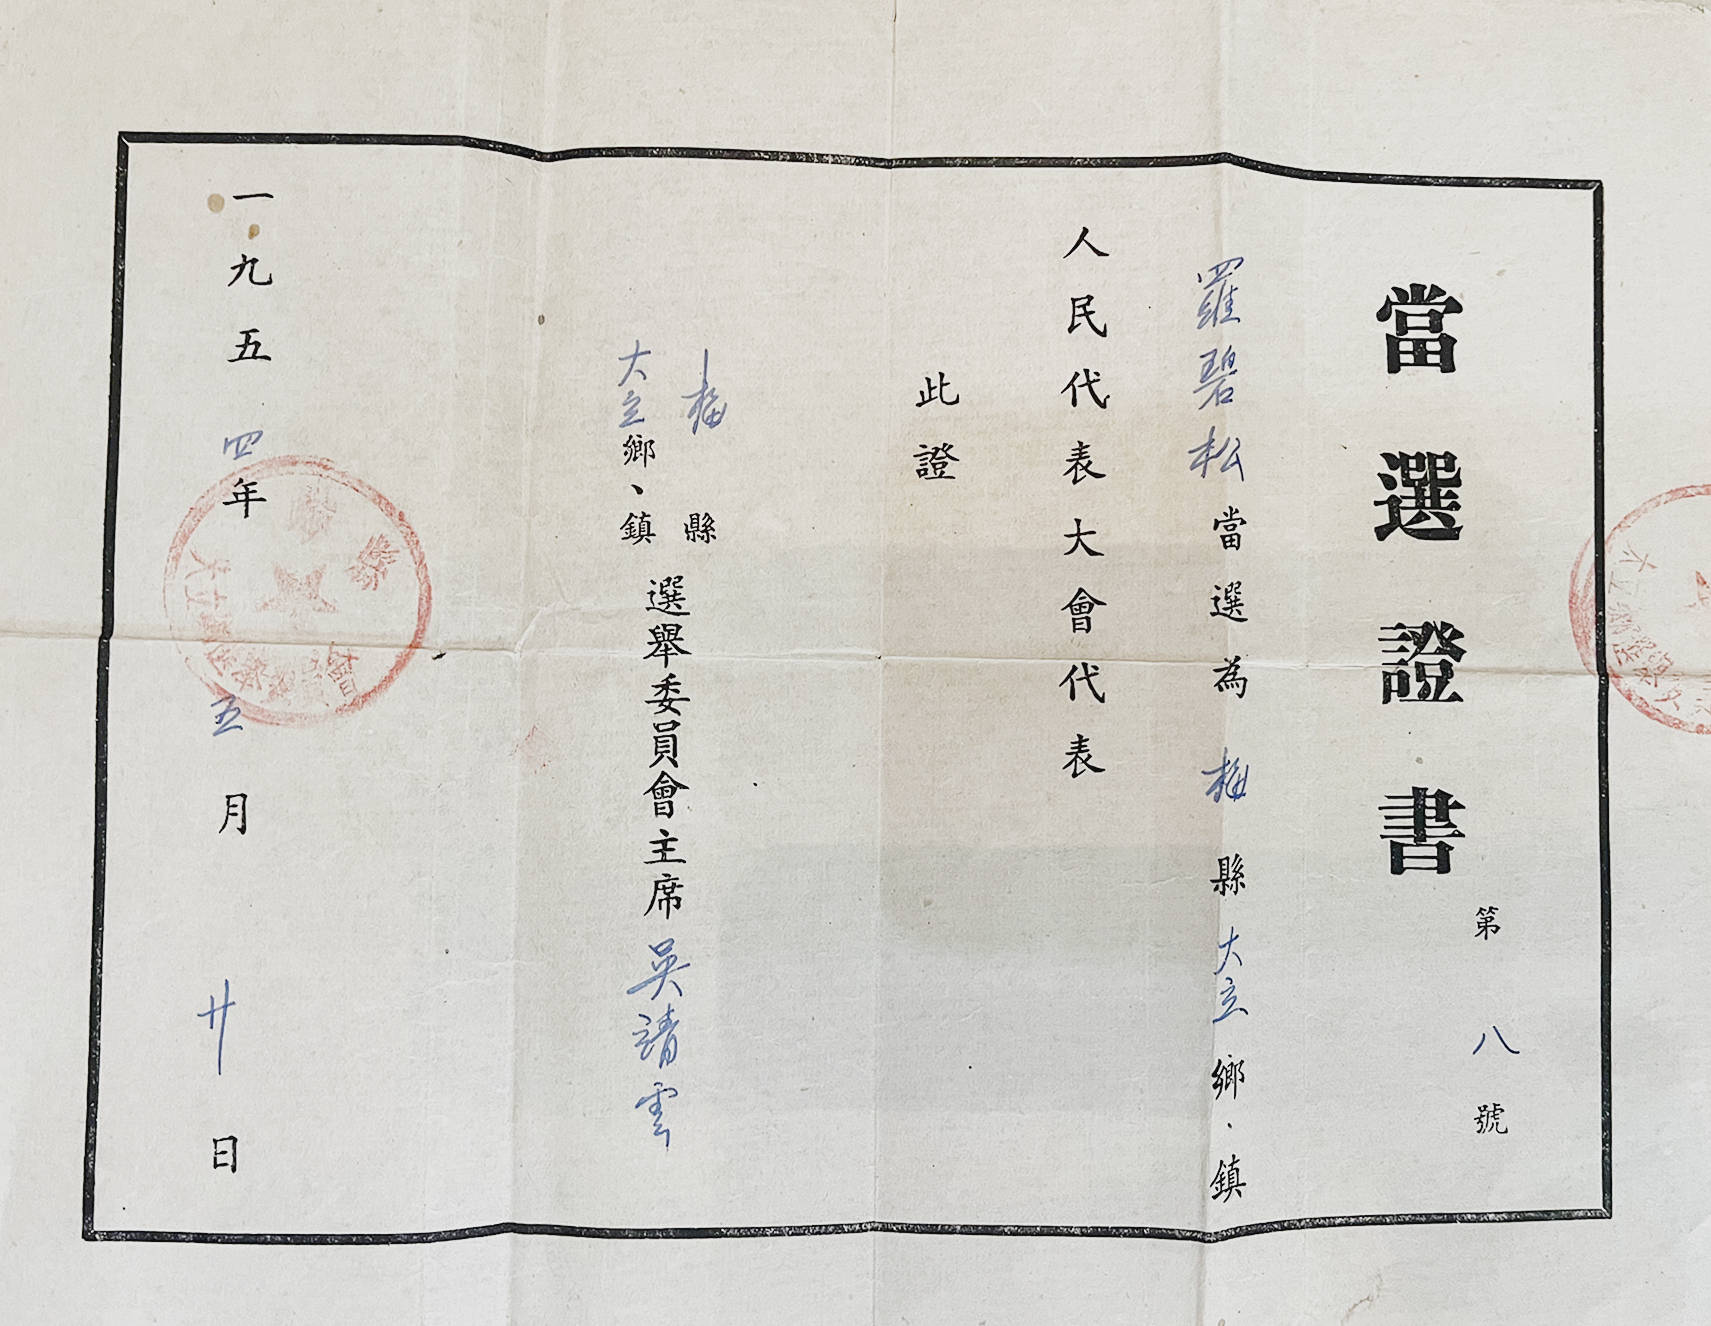 當選證書
第八號
羅碧松當選為梅縣大立鄉、鎮
人民代表大會代表
此證
梅縣
大立鄉、鎮
選舉委員會主席吳靖雲
一九五四年五月廿日